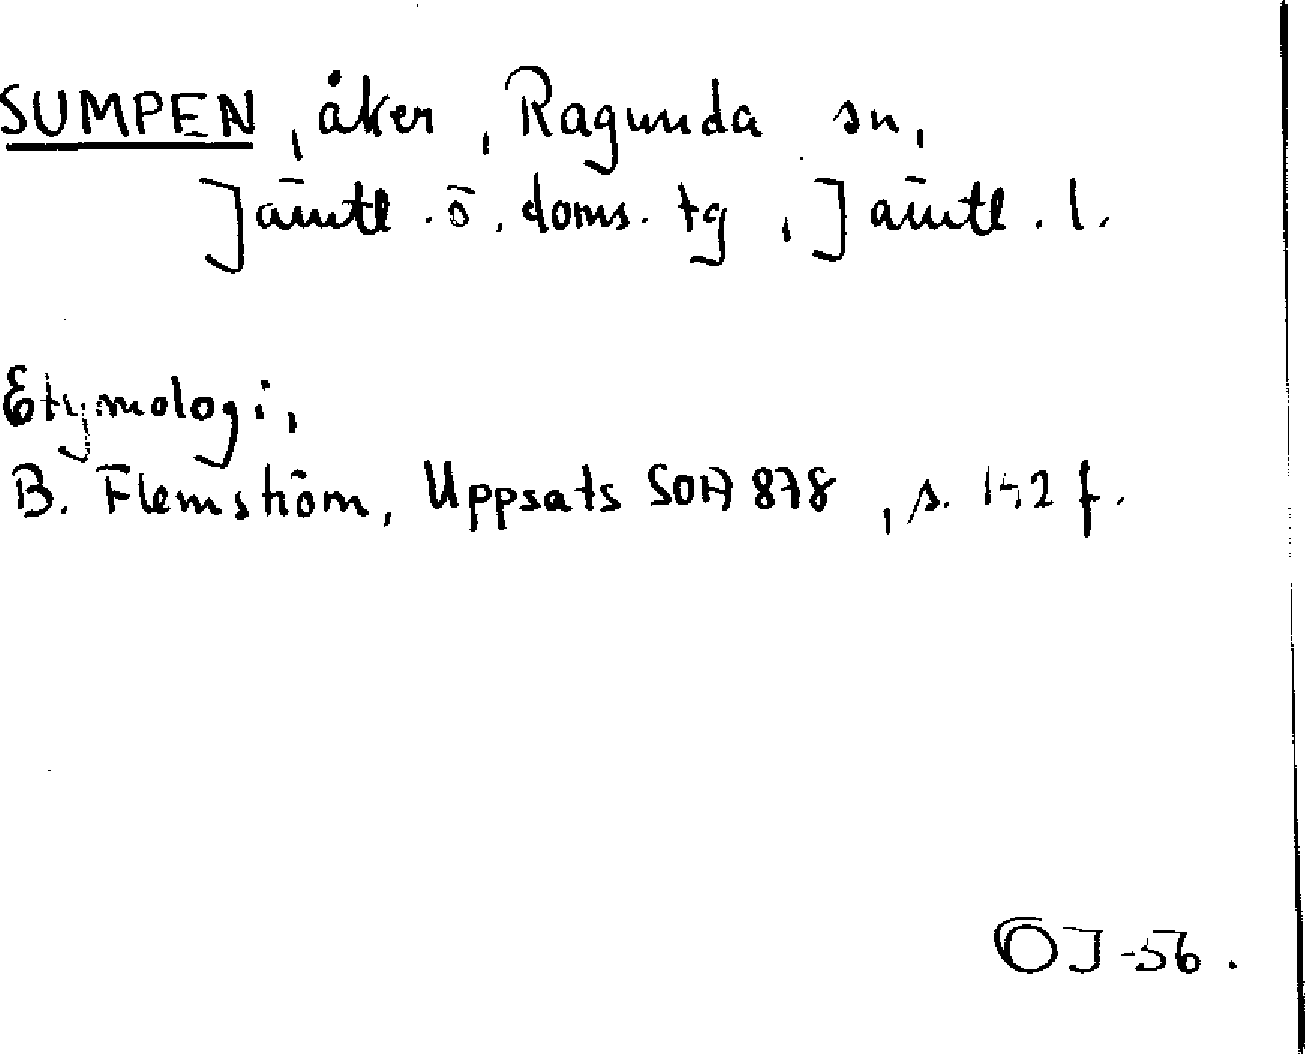 SUMPEN, åker, Ragunda sn,
Jämtl. ö. doms. tg, Jämtl. l.
Etymologi,
B. Flemström, Uppsats SOA 878, s. f.
OJ-56.